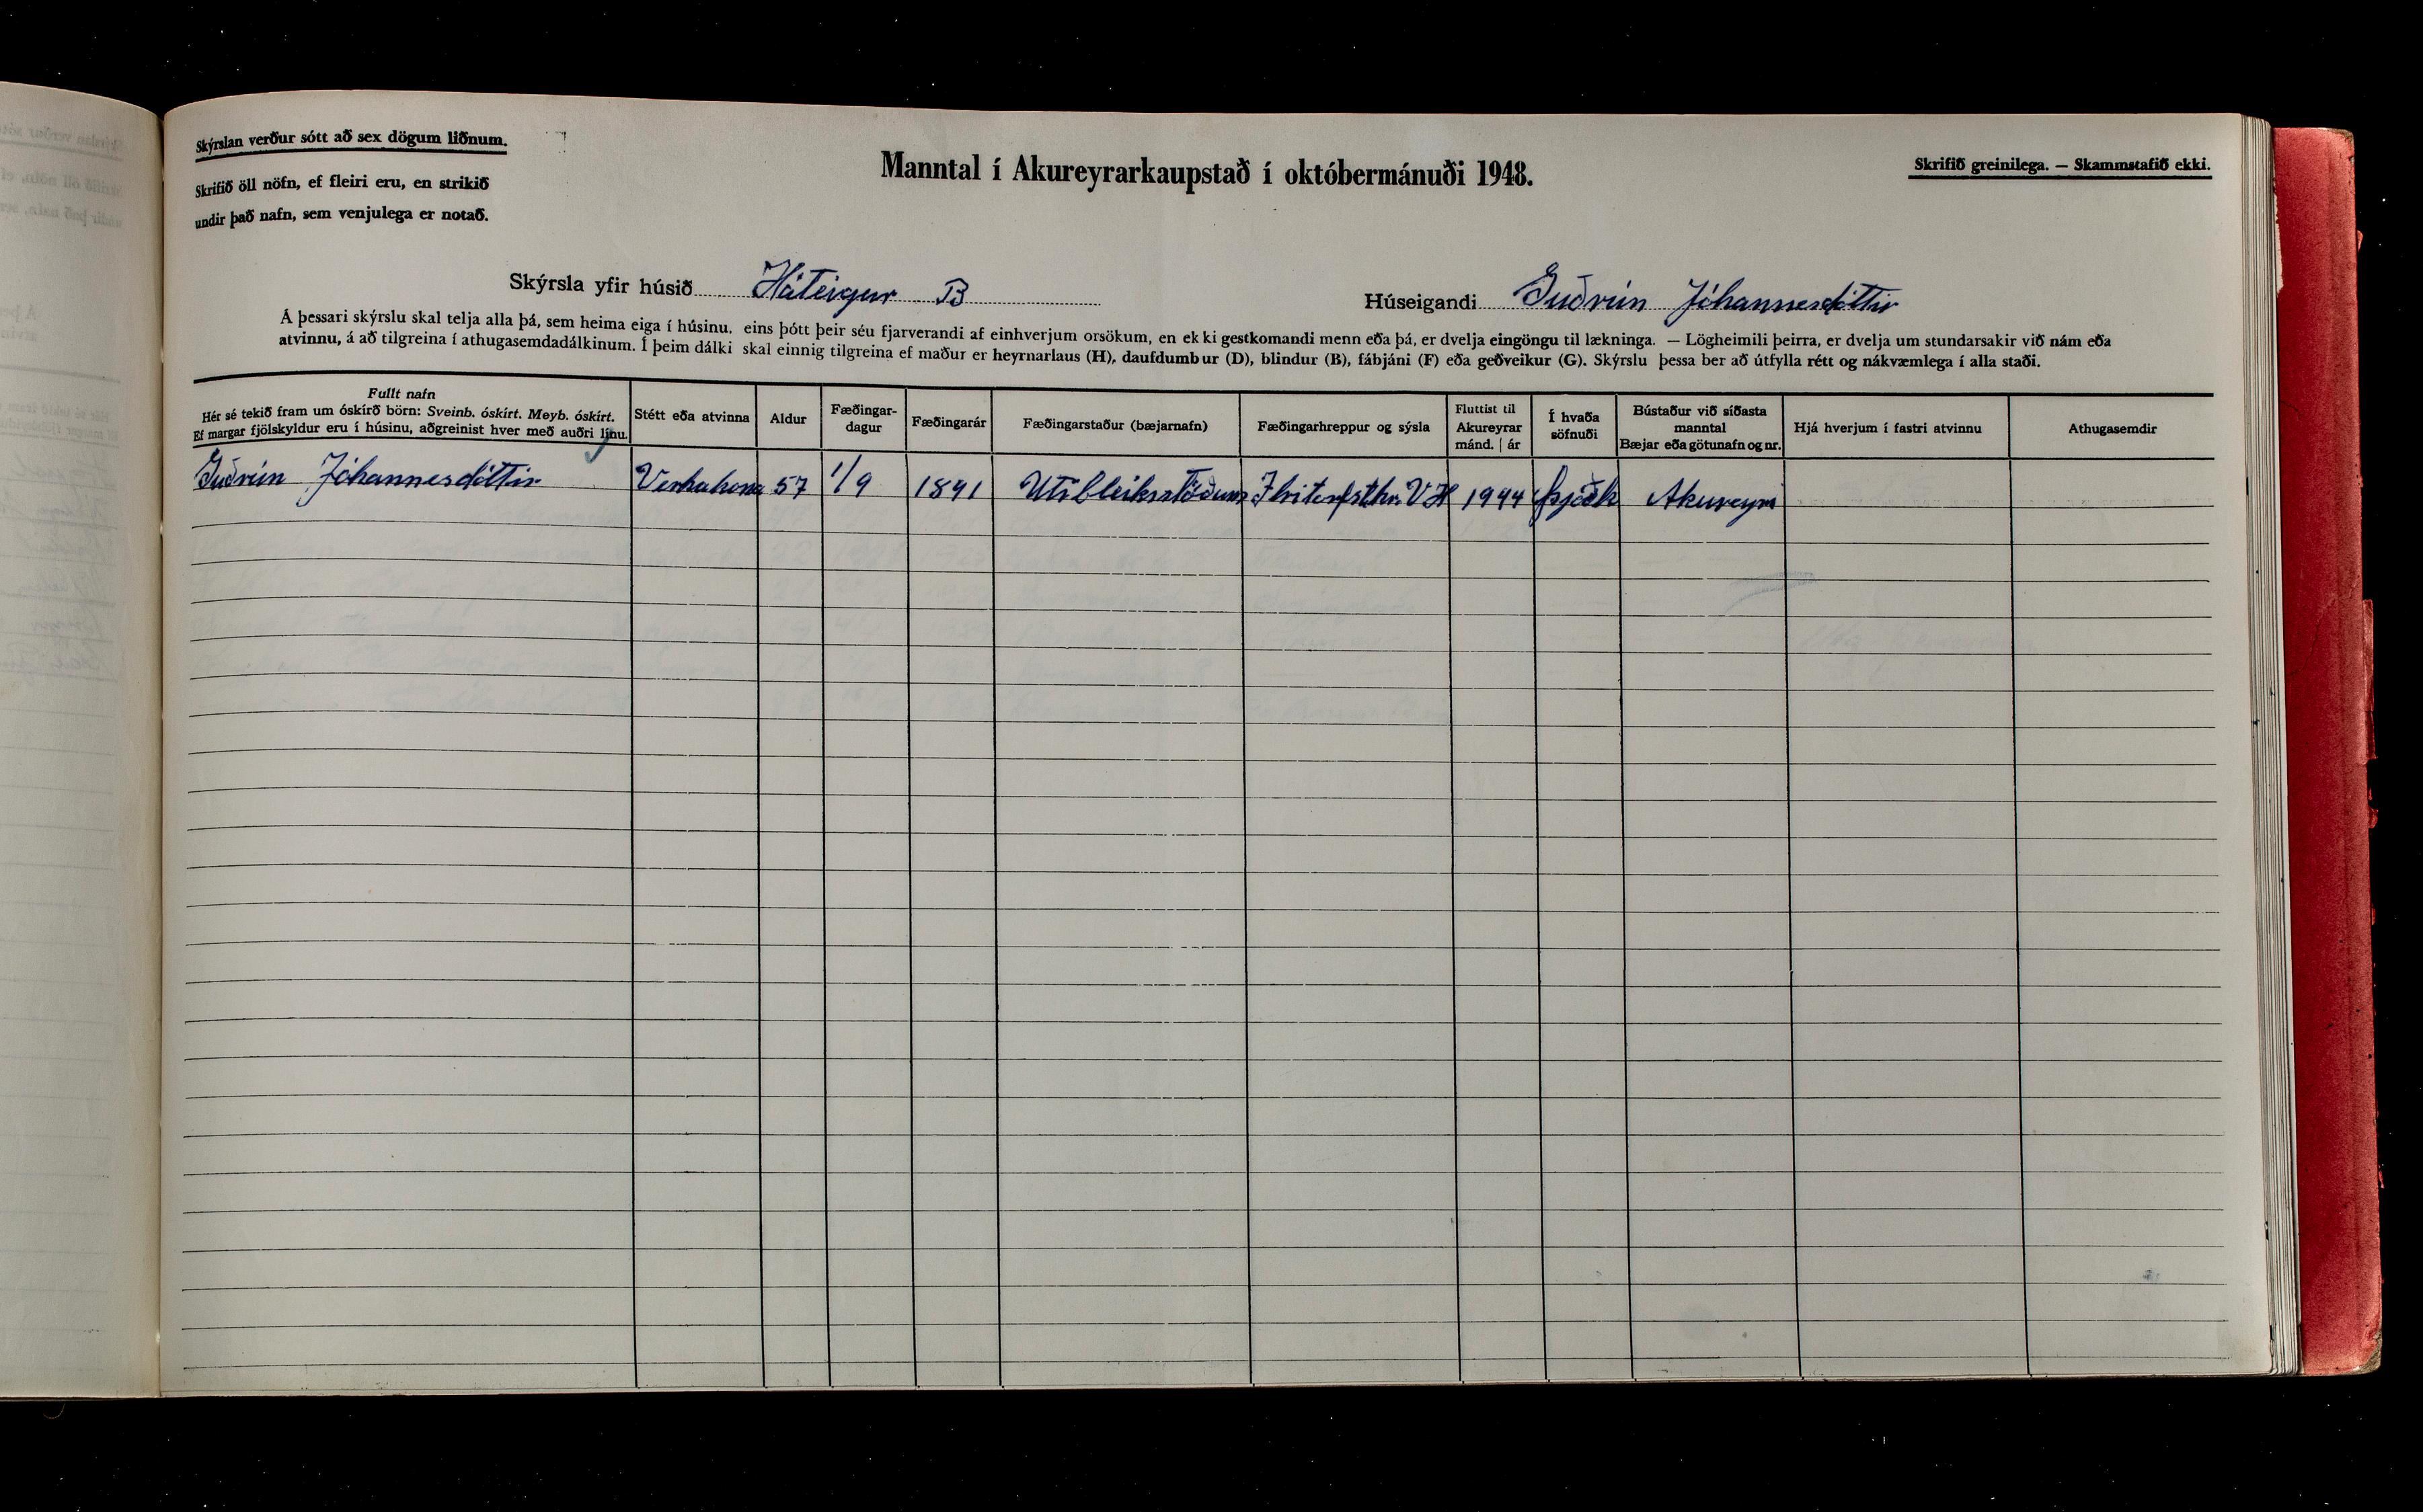 Skýrslan verður sótt að sex dögum liðnum.
Skrifið öll nöfn, ef fleiri eru, en strikið
undir það nafn, sem venjulega er notað.
Manntal í Akureyrarkaupstað í októbermánuði 1948.
Skrifið greinilega. — Skammstafið ekki.
Skýrsla yfir húsið Háteigur B
Húseigandi Guðrún Jóhannesdóttir
Á þessari skýrslu skal telja alla þá, sem heima eiga í húsinu, eins þótt þeir séu fjarverandi af einhverjum orsökum, en ekki gestkomandi menn eða þá, er dvelja eingöngu til lækninga. — Lögheimili þeirra, er dvelja um stundarsakir við nám eða
atvinnu, á að tilgreina í athugasemdadálkinum. Í þeim dálki skal einnig tilgreina ef maður er heyrnarlaus (H), daufdumbur (D), blindur (B), fábjáni (F) eða geðveikur (G). Skýrslu þessa ber að útfylla rétt og nákvæmlega í alla staði.
Fullt nafn
Hér sé tekið fram um óskírð börn: Sveinb. óskírt. Meyb. óskírt.
Ef margar fjölskyldur eru í húsinu, aðgreinist hver með auðri línu.
Stétt eða atvinna
Aldur
Fæðingar-
dagur
Fæðingarár
Fæðingarstaður (bæjarnafn)
Fæðingarhreppur og sýsla
Fluttist til
Akureyrar
mánd. | ár
Í hvaða
söfnuði
Bústaður við síðasta
manntal
Bæjar eða götunafn og nr.
Hjá hverjum í fastri atvinnu
Athugasemdir
Guðrún Jóhannesdóttir Verkakona 57 1/9 1891 Utibleiksstöðum V H 1944 Þjóðk Akureyri